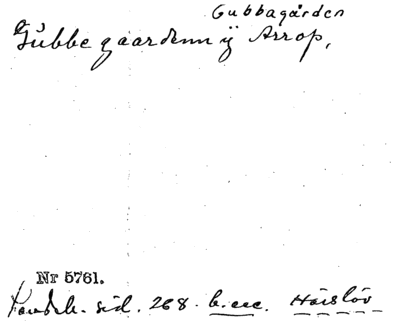 Gubbagården
Gubbegaardenn ÿ Arrop,
Nr 5761.
Landsb. sid. 268. b. ccc. Häislöv